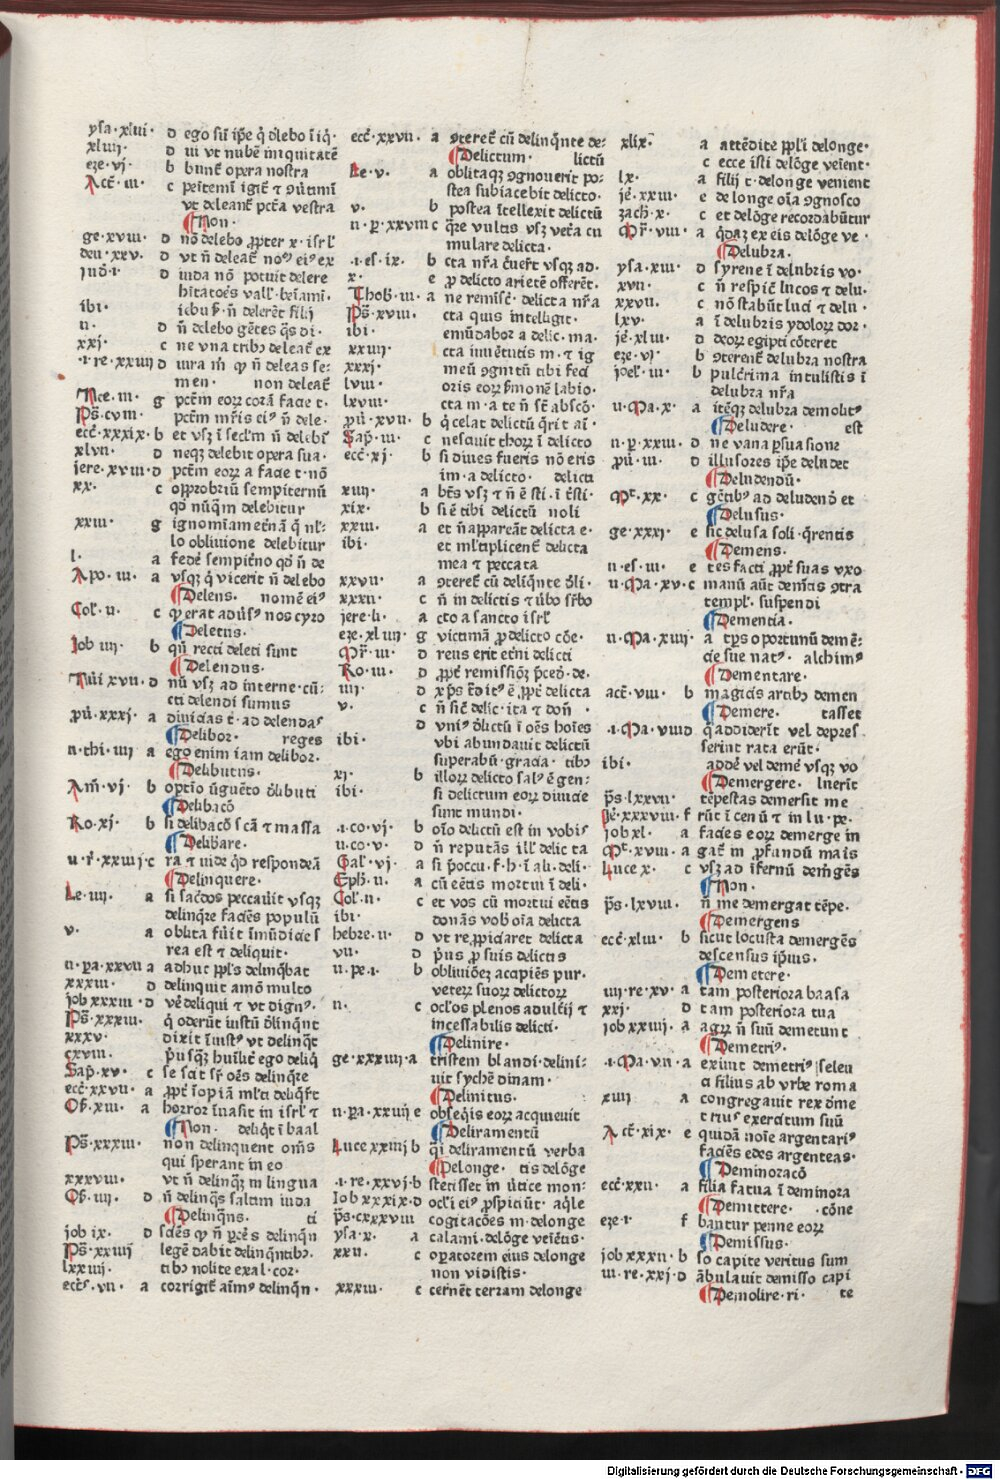 ysa·xlvi· d ego sũ ip̃e q̃ dlebo ĩiq̃·
xliiij· d ui vt nubẽ iniquitatẽ
eze·vj· b bunt̃ opera nostra
Act̃·iii· c peitemĩ igit̃ ⁊ ꝯũtimĩ
vt deleant̃ pctã vestra
¶Non·
ge·xviii· d nõ delebo ꝓpter x·isrl̃
deu·xxv· d vt ñ deleat̃ noꝰ eiꝰ ex
iud̃·i· d iuda nõ potuit delere
hĩtatoẽs vall̃·beĩami·
ibi· icbuẜ·ñ delerẽt filij
ii· d ñ delebo gẽtes q̃s di·
xxj· c ne vna tribꝰ deleat̃ ex
·i·re·xxiiij d iura m̃ ꝙ ñ deleas se-
men· non deleat̃
Nee·iii· g pctm̃ eoꝝ corã facie t·
Ps̃·cviii· pctm̃ mr̃is eiꝰ ñ dele·
ecc̃·xxxix· b et vsꝫ ĩ secl̃m ñ delebi᷑
xlvii· d neqꝫ delebit opera sua·
iere·xviii·d pctm̃ eoꝝ a facie t·nõ
xx· c opprobriũ sempiternũ
qd̃ nũq̃m delebitur
xxiii· g ignomĩam et̃nã q̃ nl̃-
lo obliuione delebitur
l· a fedẽ sempit̃no qd̃ ñ de
Apo·iii· a vsqꝫ q̃ vicerit ñ delebo
¶Delens· nomẽ eiꝰ
Col̃·ii· c ꝙ erat aduẽsꝰ nos cyro
¶Deletus·
Job iiij· b qñ recti deleti sunt
¶Delendus·
Nũi xvii· d nũ vsꝫ ad interne·cũ:
cti delendi sumus
pũ·xxxj· a diuicias t·ad delendas
¶Delibor· reges
ii·thi·iiij a ego enim iam delibor·
¶Delibutus·
Am̃·vj· b optio ũguẽto dlibuti
¶Delibacõ
Ro·xj· b si delibacõ scã ⁊ massa
¶Delibare·
ii·r̃·xxiiij·c ra ⁊ uide qd̃ respondeã
¶Delinquere·
Le·iiij· a si sac̃dos peccauĩt vsqꝫ
delinq̃re faciẽs populũ
v· a oblita fũit ĩmũdicie s
rea est ⁊ deliquit·
ii·pa·xxvii a adhuc ppl̃s delinq̃bat
xxxiii· d delinquit amõ multo
job xxxiii·d ve᷑ deliqui ⁊ vt dignꝰ·
Ps̃·xxxiii· q̃ oderũt iustũ dlĩnq̃nt
xxxv· dixit ĩiustꝰ vt delinq̃t
cxviii· p̃usq̃ꝫ huil̃t̃ ego deliq̃
Sap̃·xv· c se scit sr̃ oẽs delinq̃re
ecc̃·xxvii· a ꝓpt̃ ĩopiã ml̃ti deliq̃rt̃
Os̃·xiii· a horror ĩuasit in isrl̃ ⁊
¶Non· deliq̃t ĩ baal
Ps̃·xxxiii· non delinquent om̃s
qui sperant in eo
xxxviii· vt ñ delinq̃ꝫ ĩn lingua
Os̃·iiij· d ñ delinq̃s saltim iuda
¶Delinq̃ns· ti
job ix· d sciẽs ꝙ ñ pc̃es delinq̃n
Ps̃·xxiiij legẽ dabit delinq̃ntibꝰ·
lxxiiij· tibꝰ nolite exal·cor·
ecc̃s·vii· a corrigit̃ aĩmꝰ delinq̃n·
ecc̃·xxvii· a ꝯteret̃ cũ delinq̃nte de-
¶Delictum· lictũ
Le·v· a oblitaqꝫ ꝯgnouerit po-
stea subiacebit delicto·
v· b postea ĩtellexit delictũ
ii·p·xxviii c q̃re vultis vsꝫ vet̃a cu
mulare delicta·
·i·es·ix· b cta nr̃a c̃uert̃ vsqꝫ ad·
x· e ꝓ delicto arietẽ offerẽt·
Thob·iii· a ne remisc̃·delicta nr̃a
Ps̃·xviii· cta quis intelligit·
ibi· emũdabor a delic·ma·
xxiiij· cta iuuẽtutis m·⁊ ig
xxxj· meũ ꝯgnitũ tibi feci
lviii· oris eoꝝ ẜmonẽ labio·
lxviii· cta m·a te ñ sẽt abscõ·
pũ·xvii· b q̃ celat delictũ q̃rit ai᷑·
Sap̃·iii· c nesciuit thoꝝ ĩ delicto
ecc̃·xj· b si diues fueris nõ eris
im·a delicto· delicti
xiii· a bẽs vsꝫ ⁊ ñ ẽ sti·ĩ c̃sti·
xix· b si ẽ tibi delictũ noli
xxiii· a et ñ appareãt delicta e·
ibi· et ml̃tiplicent̃ delicta
mea ⁊ peccata
xxvii· a ꝯteret̃ cũ deliq̃nte dli·
xxxii· c ñ in delictis ⁊ ũbo sr̃bo
jere·li· a cto a sancto isrl̃
eze·xliiij· g victimã ꝓ delicto cõe·
Mr̃·iii· d reus erit et̃ni delicti
Ro·iii· d ꝓpt̃ remissiõꝫ p̃ced·de·
iiij· d xp̃s t̃ditꝰ ẽ ꝓpt̃ delicta
v· c ñ sic̃ delic·ita ⁊ doñ·
d vniꝰ dlictũ ĩ oẽs hoĩes
ibi· vbi abundauit delictũ
superabũ·gracia·tibꝰ
xj· b illoꝝ delicto salꝰ ẽ gen·
ibi· si delictum eoꝝ diuicie
sunt mundi·
·i·co·vj· b oĩo delictũ est in vobis
ii·co·v· d ñ reputãs ill̃ delicta
Gal̃·vj· a si p̃occu·f·h·ĩ ali·deli·
Eph̃·ii· a cũ eẽtis mortui ĩ deli·
Col̃·ii· c et vos cũ mortui eẽtis
ibi· donãs vob̃ oĩa delicta
hebre·ii· d vt repꝓpiciaret delicta
vii· d p̃us ꝓ suis delictis
ii·pe·i· b obliuiõeꝫ accipiẽs pur·
veteꝝ suoꝝ delictoꝝ
ii· c ocl̃os plenos adult̃ij ⁊
incessabilis delicti·
¶Delinire·
ge·xxxiiij·a tristem blandi·delini-
uit sychẽ dinam·
¶Delinitus·
ii·pa·xxiiij e obseq̃is eoꝝ acquieuit
¶Deliramentũ
Luce xxiiij b q̃i deliramentũ verba
¶Delonge· tis delõge
·i·re·xxvj·b stetisset in ũtice mon·
Iob xxxix·d ocl̃i eiꝰ ꝓspiciũt·aq̃le
ps̃·cxxxviii cogitacões m·delonge
ysa·x· a calami·delõge veiẽtis·
xxii· c operatorem eius delonge
non vidistis·
xxxiii· c cernẽt terram delonge
xlix· a attẽdite ppl̃i delonge·
c ecce isti delõge veĩent·
lx· a filij t·delonge venient
je᷑·xxiii· e de longe oĩa ꝯgnosco
zach̃·x· c et delõge recordabũtur
Mr̃·viii· a q̃daꝫ ex eis delõge ve·
¶Delubra·
ysa·xiii· d syrene ĩ delubris vo·
xvii· c ñ respic̃ lucos ⁊ delu·
xxvii· c nõ stabũt luci ⁊ delu·
lxv· a ĩ delubris ydoloꝝ dor·
je᷑·xliii· d deoꝝ egipti cõteret
eze·vj· b ꝯterent̃ delubra nostra
joel̃·iii· b pulc̃rima intulistis ĩ
delubra nr̃a
ii·Ma·x· a itẽqꝫ delubra demolitꝰ
¶Deludere· est
ii·p·xxiii· d ne vana ꝑsuasione
pũ·iii· d illusores ip̃e deludet
¶Deludendũ·
Mt̃·xx· c gẽtibꝰ ad deludend̃ et
¶Delusus·
ge·xxxj· e sic delusa soli·q̃rentis
¶Demens·
ii·es·iii· e tes facti ꝓpt̃ suas vxo
ii·Ma·xv·c manũ aũt demẽtis ꝯtra
templ̃·suspendi
¶Dementia·
ii·Ma·xiiij· a tp̃s oportunũ demẽ-
cie sue natꝰ· alchimꝰ
¶Dementare·
act̃·viii· b magicis artibꝰ demen
¶Demere· tasset
·i·Ma·viii d q̃ addiderĩt vel depres
serint rata erũt·
ibi· addẽ vel demẽ vsqꝫ vo
¶Demergere· luerĩt
ps̃·lxxvii· tẽpestas demersit me
je᷑·xxxviii·f rũt ĩ cenũ ⁊ in lu·pe·
job xl· a facies eoꝝ demerge in
Mt̃·xviii· a gat̃ ĩn ꝓfundũ maris
Luce x· c vsꝫ ad ĩfernũ dem̃gẽs
¶Non·
ps̃·lxviii· ñ me demergat tẽpe·
¶Demergens
ecc̃·xliii· b sicut locusta demergẽs
descensus ip̃ius·
¶Demetere·
iiij·re·xv· a tam posteriora baasa
xxj· d tam posteriora tua
job xxiiij· a agꝝ ñ suũ demetunt
¶Demetriꝰ·
·i·Ma·vii· a exiuit demetriꝰ seleu
ci filius ab vrbe roma
xiiij a congregauit rex deme
trius exercitum suũ
Act̃·xix· e quidã noĩe argentariꝰ
faciẽs edes argenteas·
¶Deminoracõ
ecc̃·xxii· a filia fatua ĩ deminora
¶Demittere· cõne
eze·i· f bantur penne eoꝝ
¶Demissus·
job xxxii·b so capite veritus sum
iii·re·xxj·d ãbulauit demisso capi
¶Demolire·ri· te
Digitalisierung gefördert durch die Deutsche Forschungsgemeinschaft - DFG